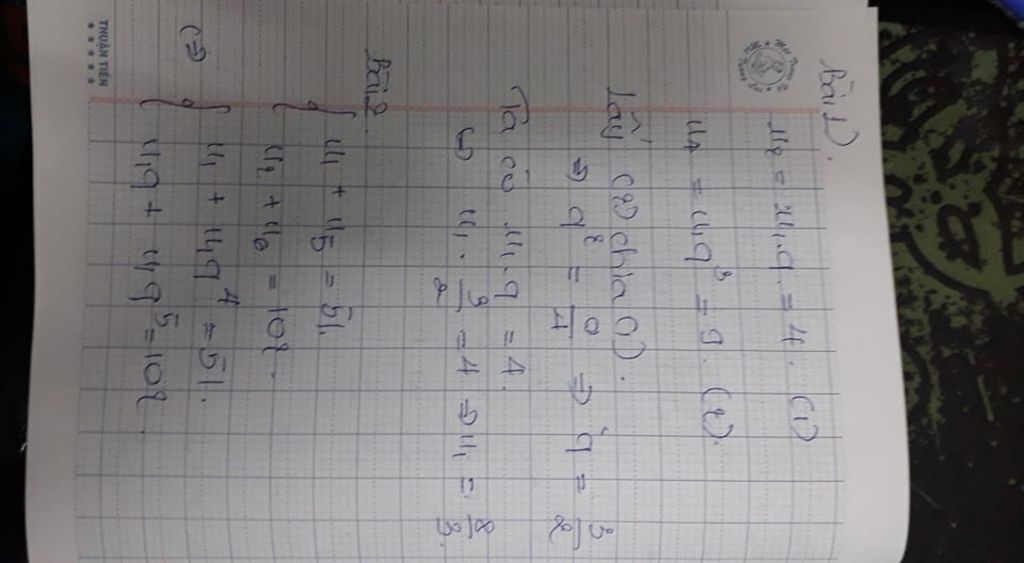 Bài 1).
u₂ = u₁.q = 4. (1)
u₄ = u₁q³ = 9. (2).
Lấy (2) chia (1).
⇒ q² = 9/4 ⇒ q = 3/2
Ta có u₁.q = 4.
u₁. 3/2 = 4 ⇒ u₁ = 8/3.
Bài 2.
{ u₁ + u₅ = 51.
u₂ + u₆ = 102.
(⇒) { u₁ + u₁q⁴ = 51.
{ u₁q + u₁q⁵ = 102.
THUẬN TIẾN